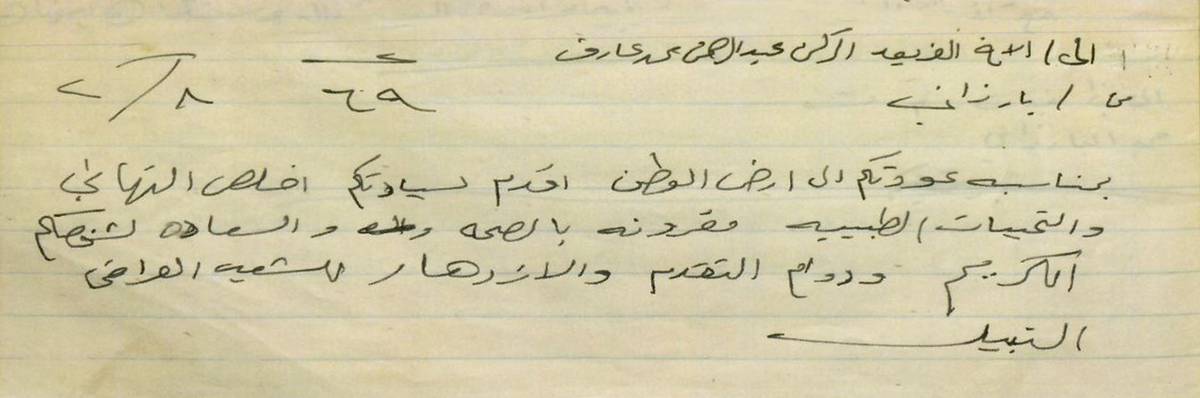 الى / الاخ الفريق الركن عبد الرحمن محمد عارف
من / بارزاني
٢ / ٨
بمناسبه عودتكم الى ارض الوطن اقدم لسيادتكم اخلص التهاني
والتحيات الطيبيه مقرونه بالصحه والسعاده لشخصكم
الكريم ودوام التقدم والازدهار للشعب العراقي
النبيل